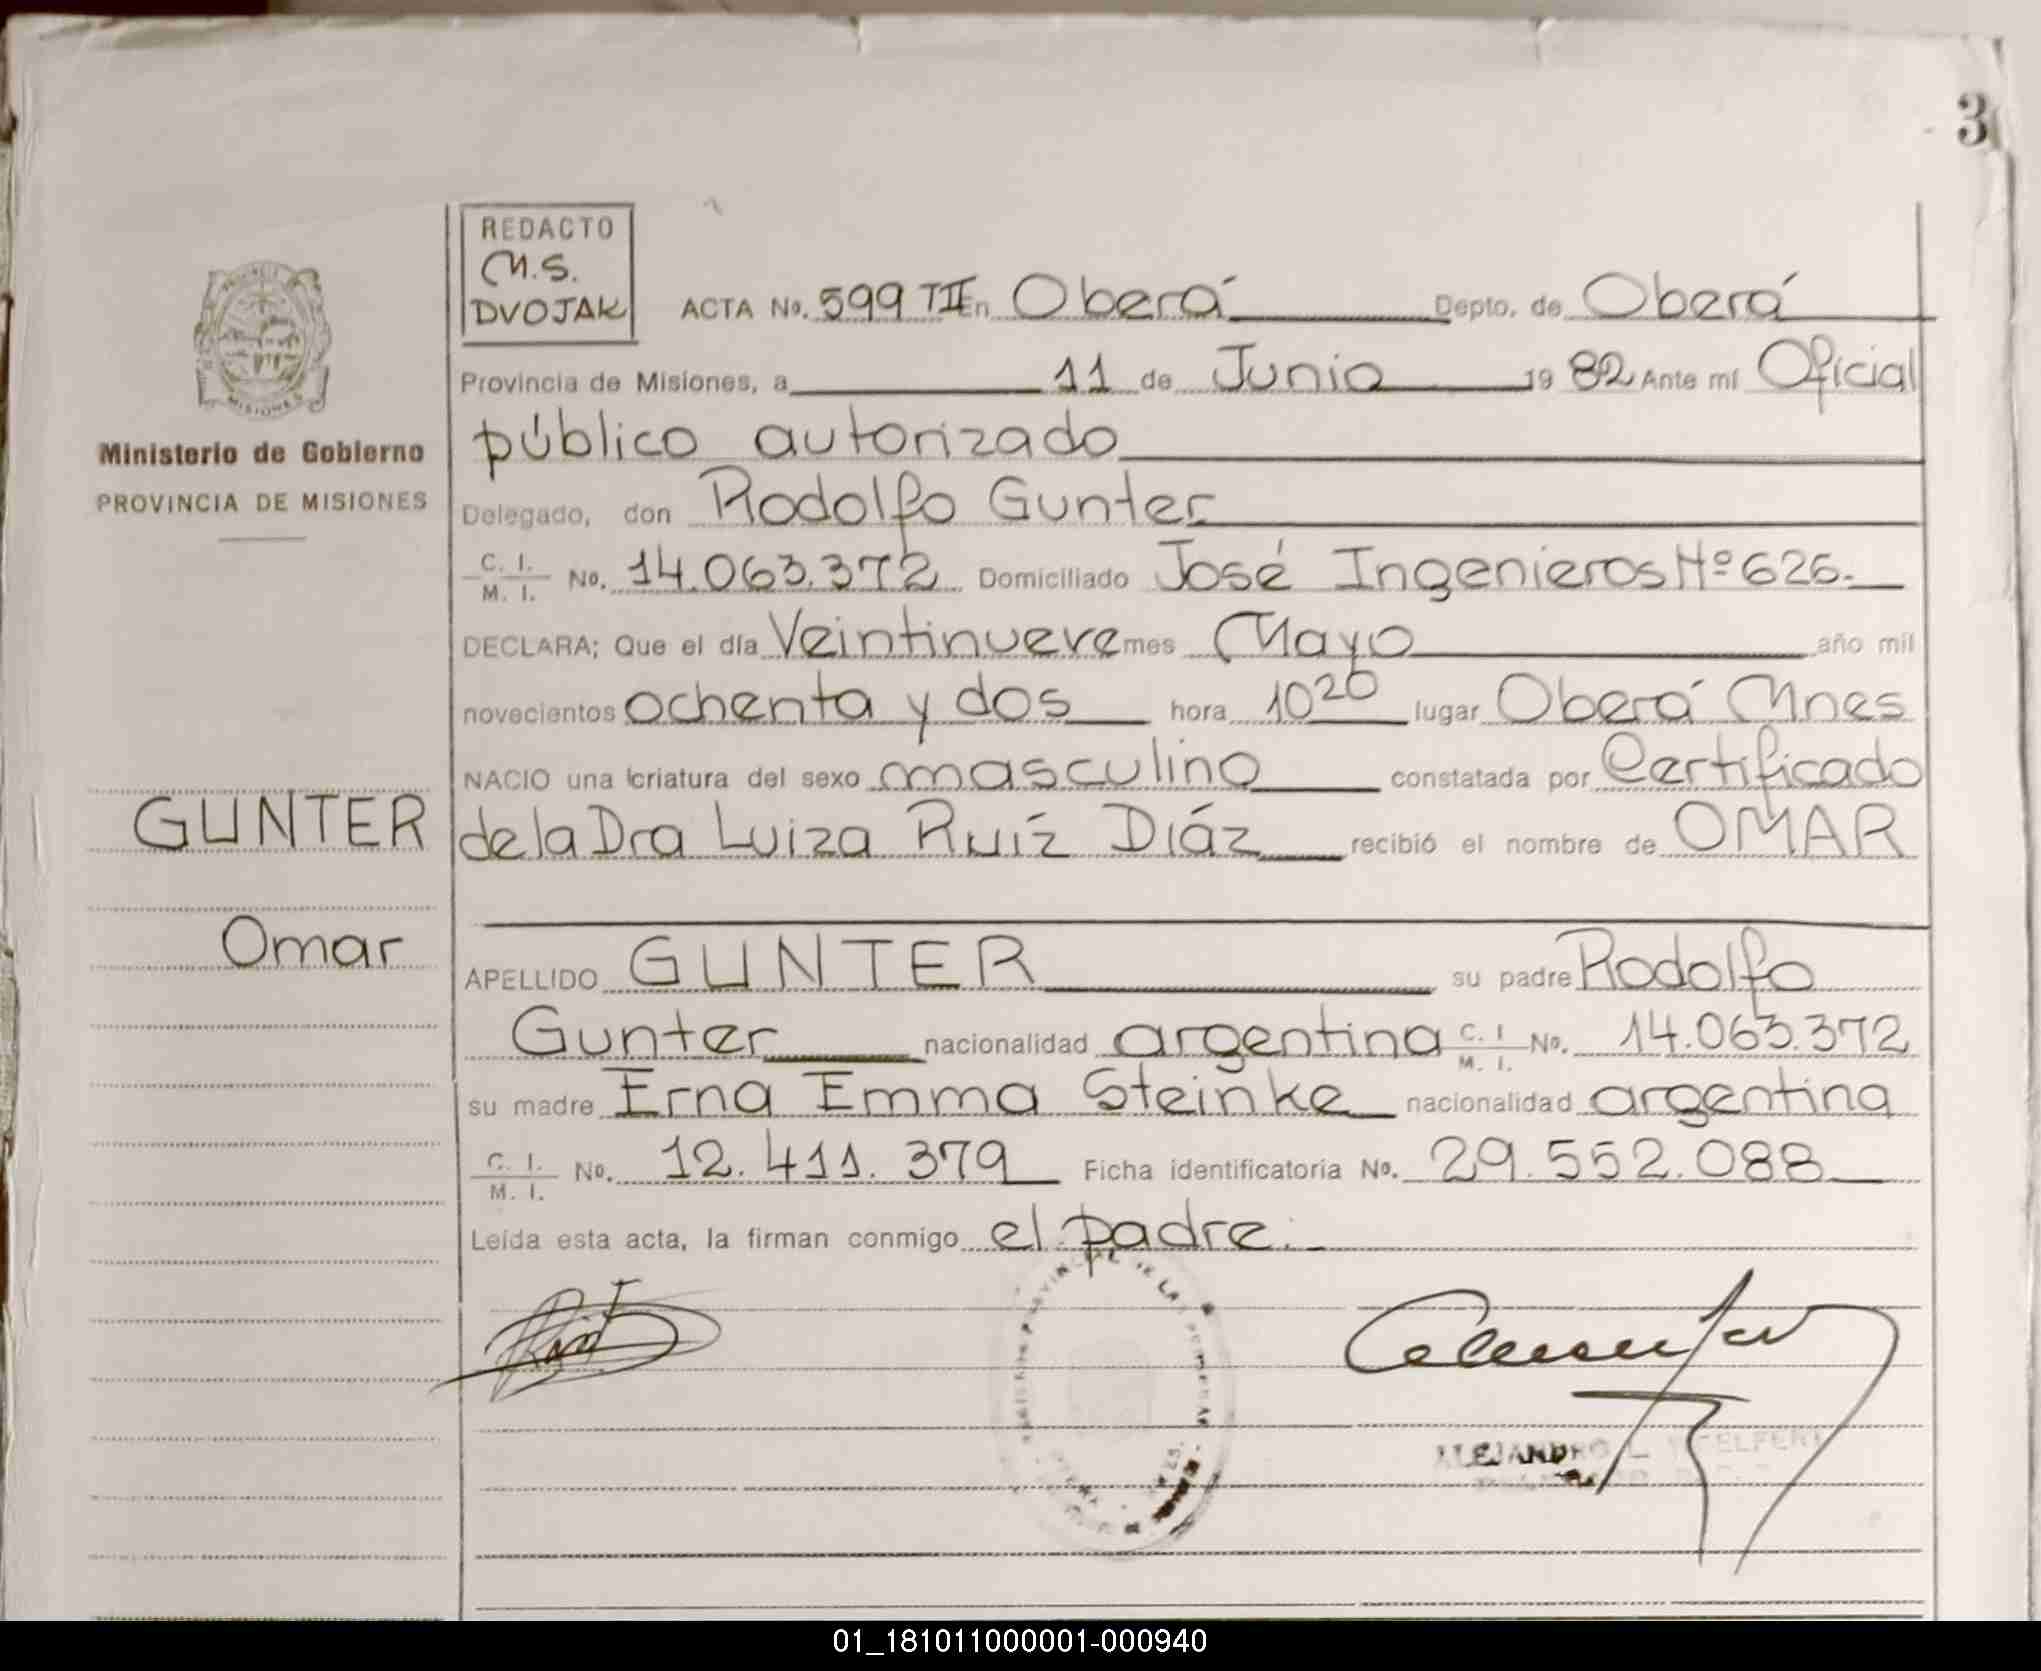 3
REDACTO
M.S.
DVOJAK
ACTA No. 599 TII En Oberá Depto. de Oberá
Provincia de Misiones, a 11 de Junio 1982 Ante mí Oficial
público autorizado
Ministerio de Gobierno
PROVINCIA DE MISIONES
MISIONES
Delegado, don Rodolfo Gunter
C. I. / M. I. No. 14.063.372 Domiciliado José Ingenieros Nº 626.
DECLARA; Que el día Veintinueve mes Mayo año mil
novecientos ochenta y dos hora 10 20 lugar Oberá Mnes
NACIO una criatura del sexo masculino constatada por Certificado
de la Dra Luiza Ruíz Díáz recibió el nombre de OMAR
GUNTER
Omar
APELLIDO GUNTER su padre Rodolfo
Gunter nacionalidad argentina C. I / M. I. No. 14.063.372
su madre Erna Emma Steinke nacionalidad argentina
C. I. / M. I. No. 12.411.379 Ficha identificatoria No. 29.552.088
Leída esta acta, la firman conmigo el padre.
ALEJANDRO L.
01_181011000001-000940